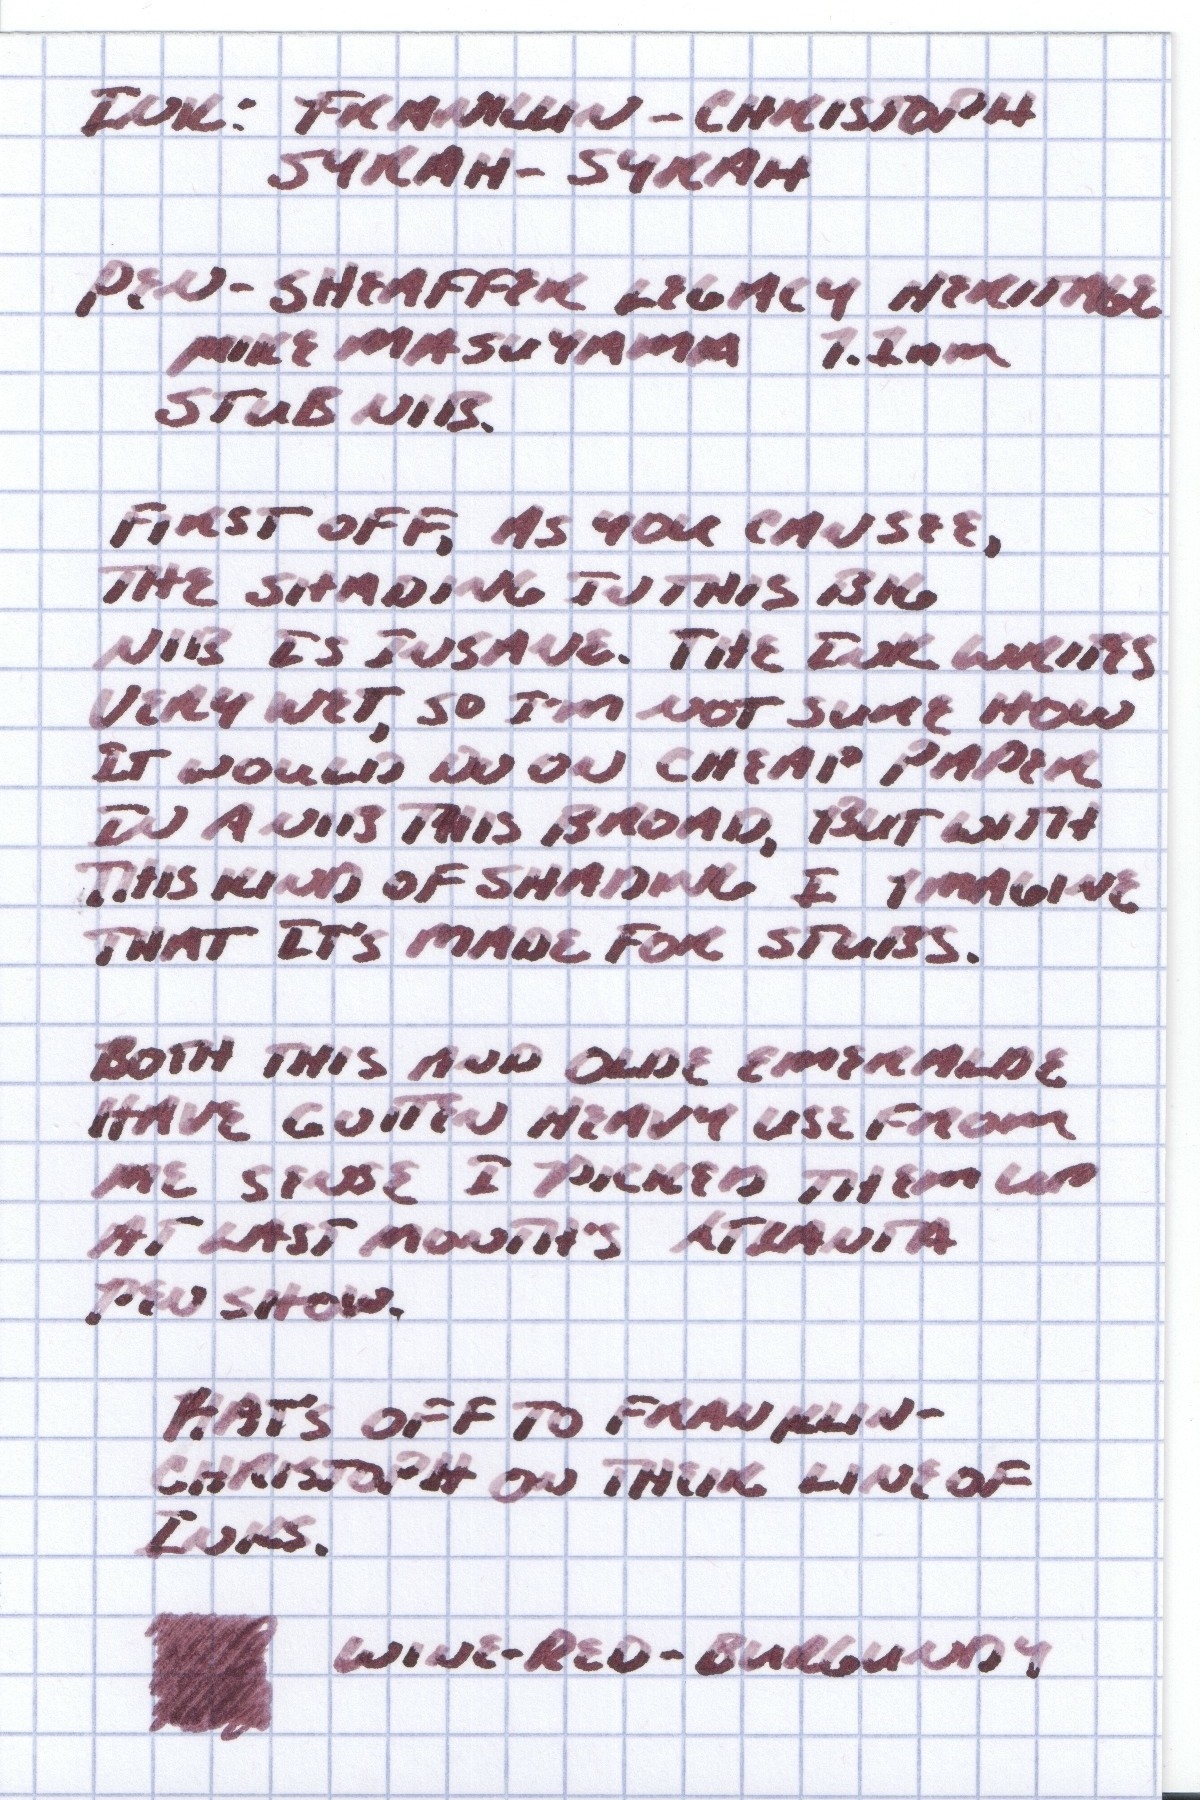 INK: FRANKLIN-CHRISTOPH
SYRAH- SYRAH
PEN- SHEAFFER LEGACY HERITAGE
MIKE MASUYAMA 1.1mm
STUB NIB.
FIRST OFF, AS YOU CAN SEE,
THE SHADING IN THIS BIG
NIB IS INSANE. THE INK WRITES
VERY WET, SO I'M NOT SURE HOW
IT WOULD DO ON CHEAP PAPER
IN A NIB THIS BROAD, BUT WITH
THIS KIND OF SHADING I IMAGINE
THAT IT'S MADE FOR STUBS.
BOTH THIS AND OLDE EMERALDE
HAVE GOTTEN HEAVY USE FROM
ME SENSE I PICKED THEM UP
AT LAST MONTH'S ATLANTA
PEN SHOW.
HAT'S OFF TO FRANKLIN-
CHRISTOPH ON THEIR LINE OF
INKS.
WINE-RED-BURGUNDY